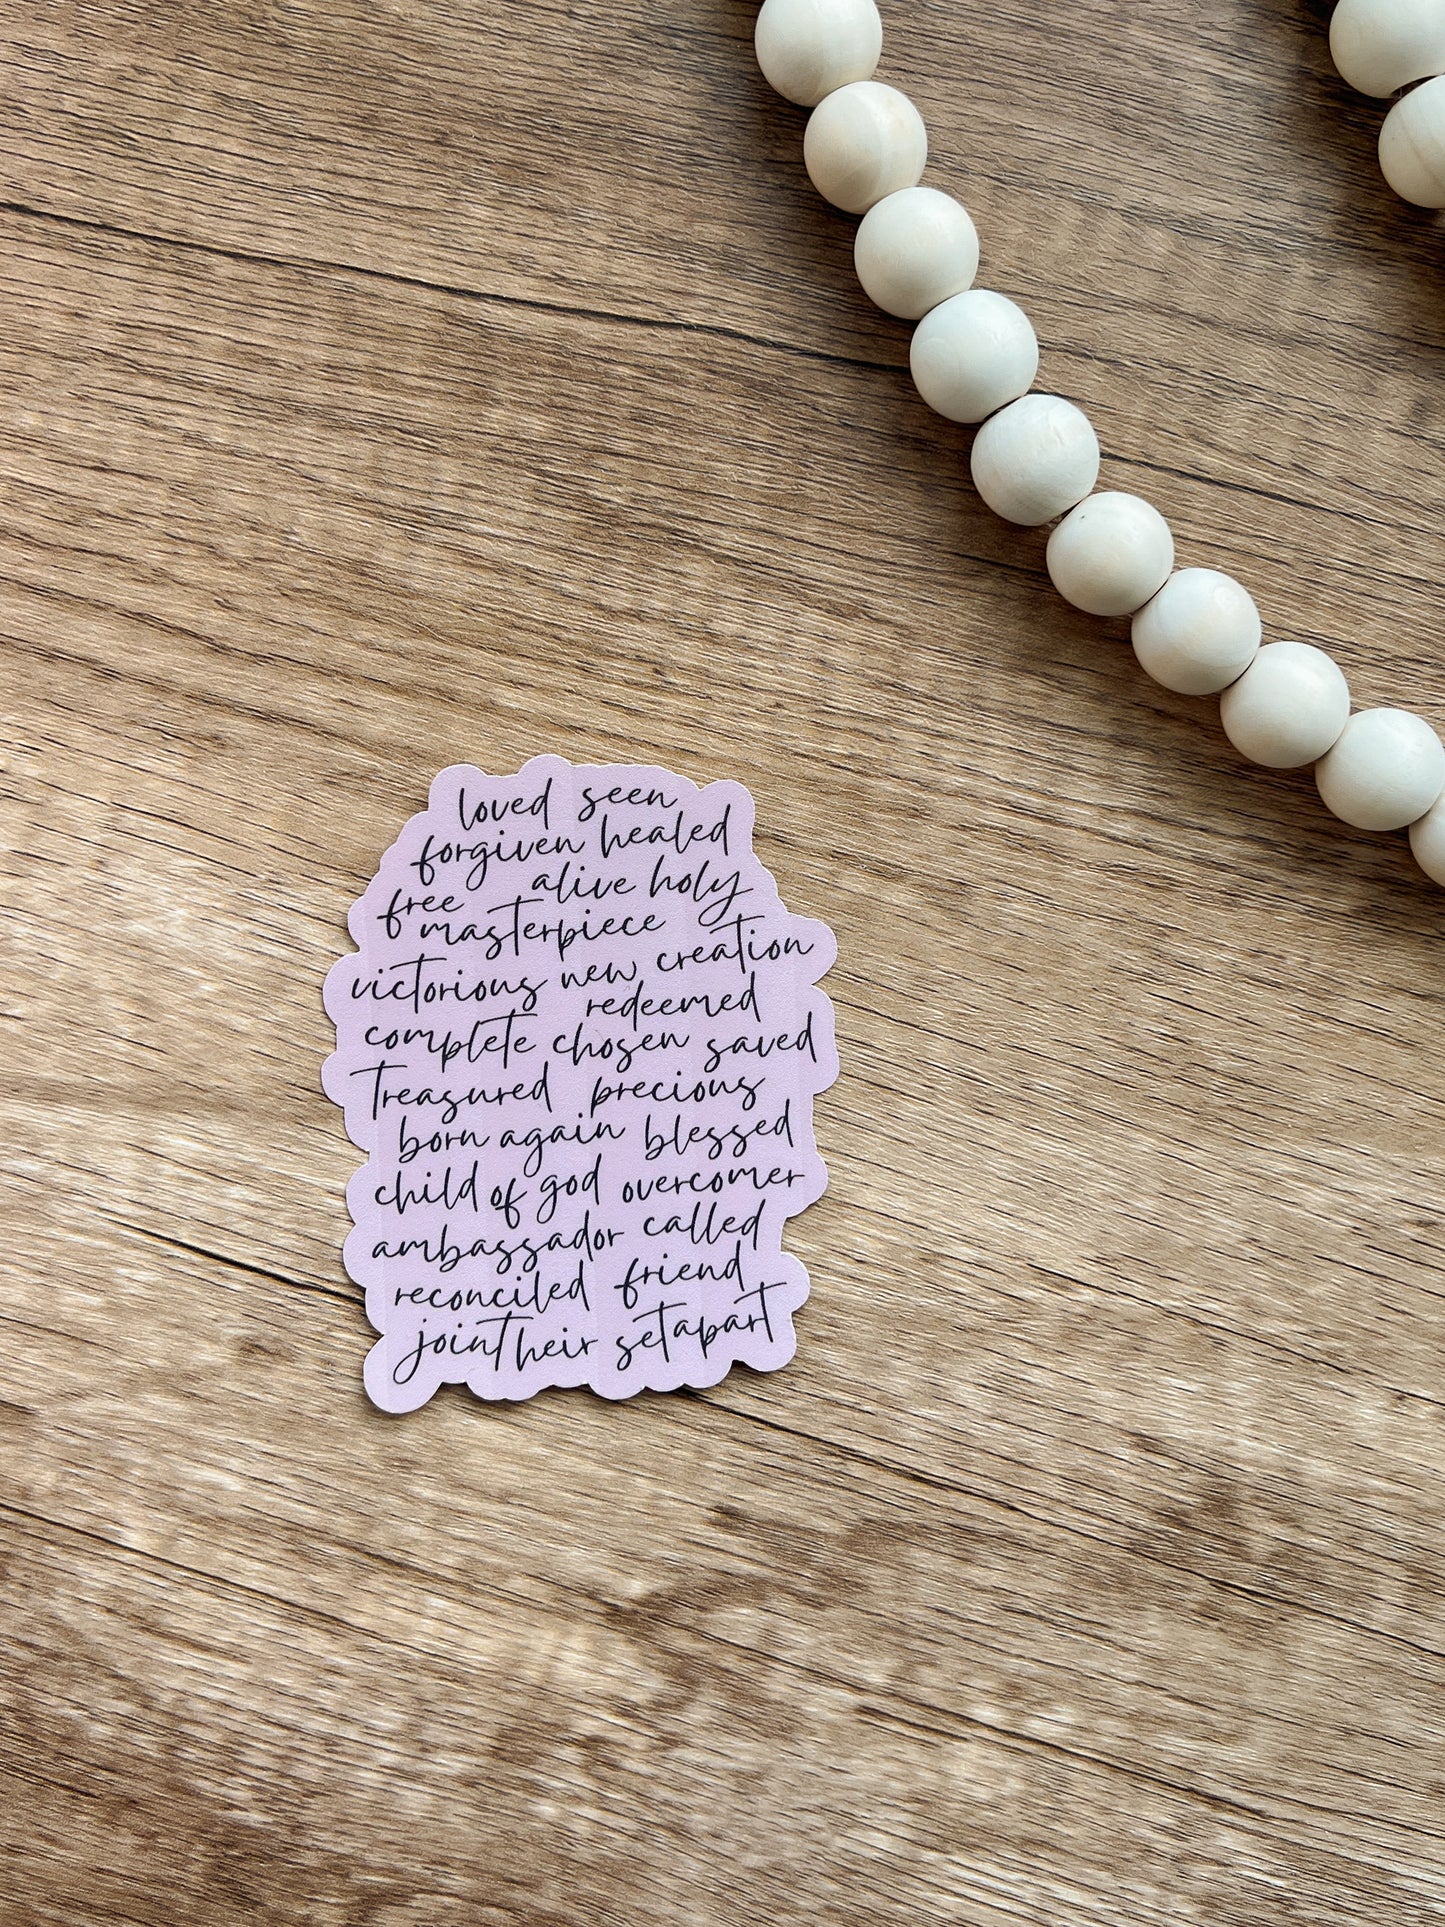 loved seen
forgiven healed
free alive holy
masterpiece
victorious new creation
redeemed
complete chosen saved
treasured precious
born again blessed
child of god overcomer
ambassador called
reconciled friend
joint heir set apart